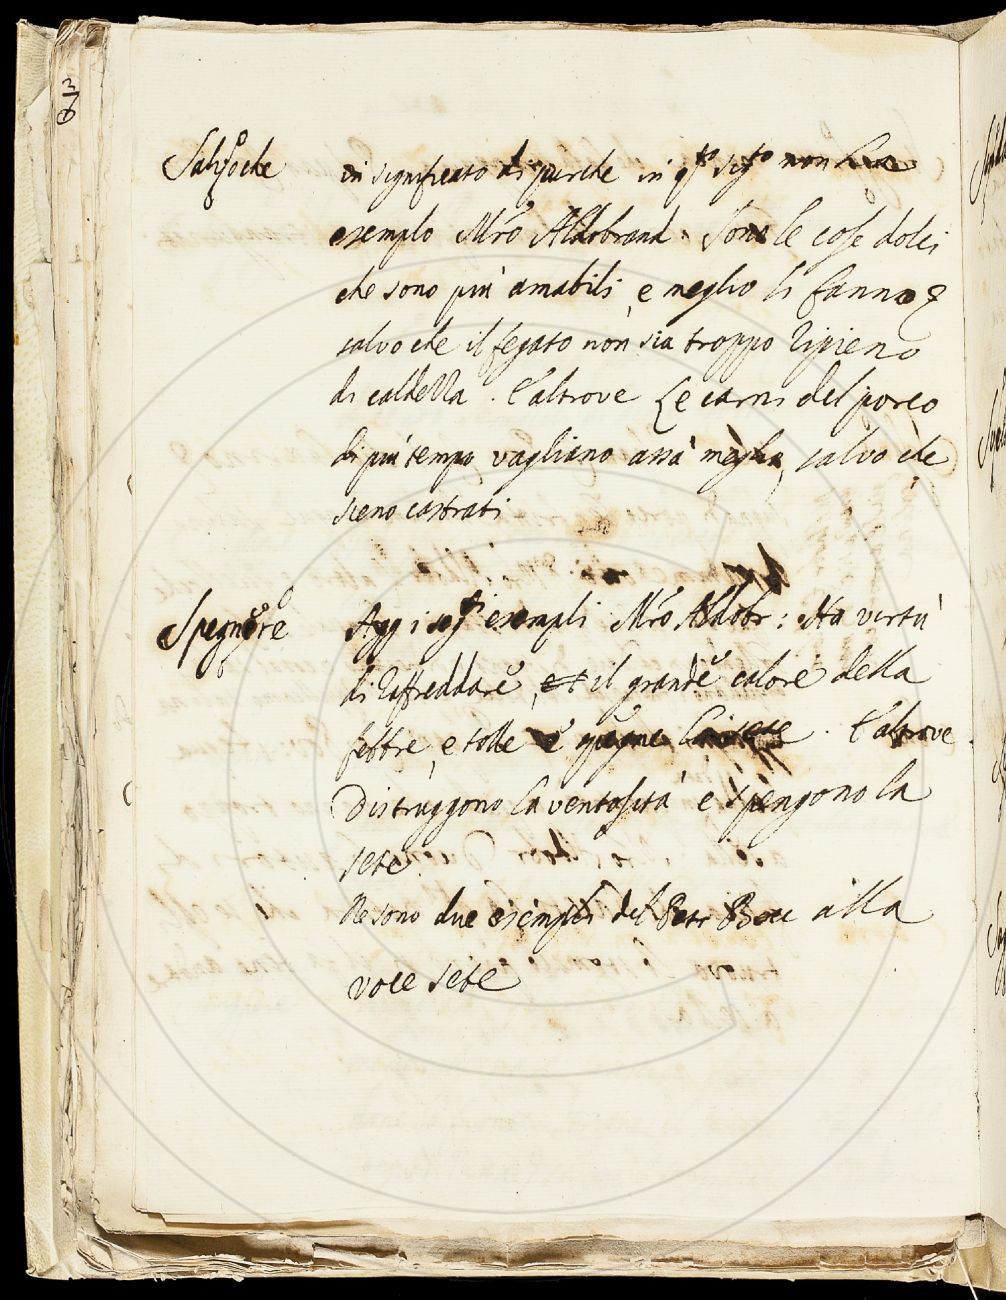 Salvoche in significato di purche in q.to sig.to non ha
esemplo Mro Aldobrand. Sono le cose dolci
che sono più amabili, e meglio si fanno
salvo che il fegato non sia troppo ripieno
di caldezza. E altrove Le carni del porco
di più tempo vagliano assà meglio, salvo che
sieno castrati
Spegnere Agg i seg.ti esempli Mro Aldobr: Ha virtù
di raffreddare, il grande calore della
febbre, e tolle e spegne la sete. E altrove
Distruggono la ventosità e spengono la
sete.
Ne sono due esempli del Petr Bocc alla
voce sete